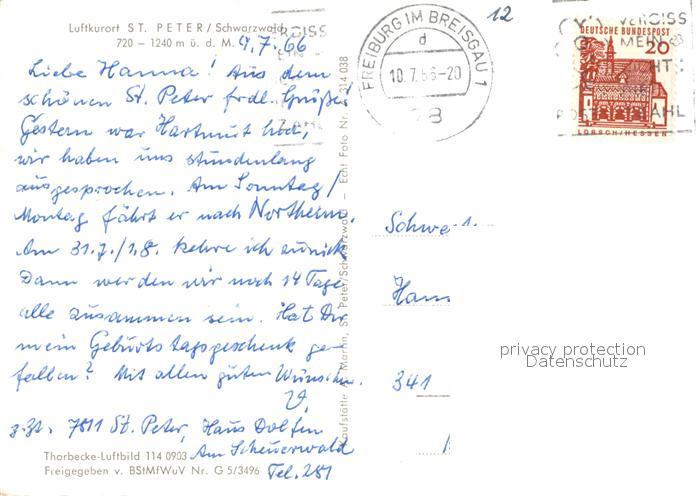 Luftkurort ST. PETER/Schwarzwald
720 – 1240 m ü. d. M. 9.7.66
Liebe Hanna! Aus dem
schönen St. Peter frdl. Grüße!
Gestern war Hartmut hier,
wir haben uns stundenlang
ausgesprochen. Am Sonntag/
Montag fährt er nach Northeim.
Am 31.7./1.8. kehre ich zurück.
Dann werden wir noch 14 Tage
alle zusammen sein. Hat Dir
mein Geburtstagsgeschenk ge-
fallen? Mit allen guten Wünschen.
z.Zt. 7811 St. Peter, Haus Dolfen
Am Scheuerwald
Tel. 281
Thorbecke-Luftbild 114 0903
Freigegeben v. BStMfWuV Nr. G 5/3496
Kaufstätte A. Martin, St. Peter/Schwarzwald – Echt Foto Nr. 314 038
FREIBURG IM BREISGAU 1
d
10.7.66-20
12
DEUTSCHE BUNDESPOST
20
LORSCH/HESSEN
Schwe
Hann
341
privacy protection
Datenschutz